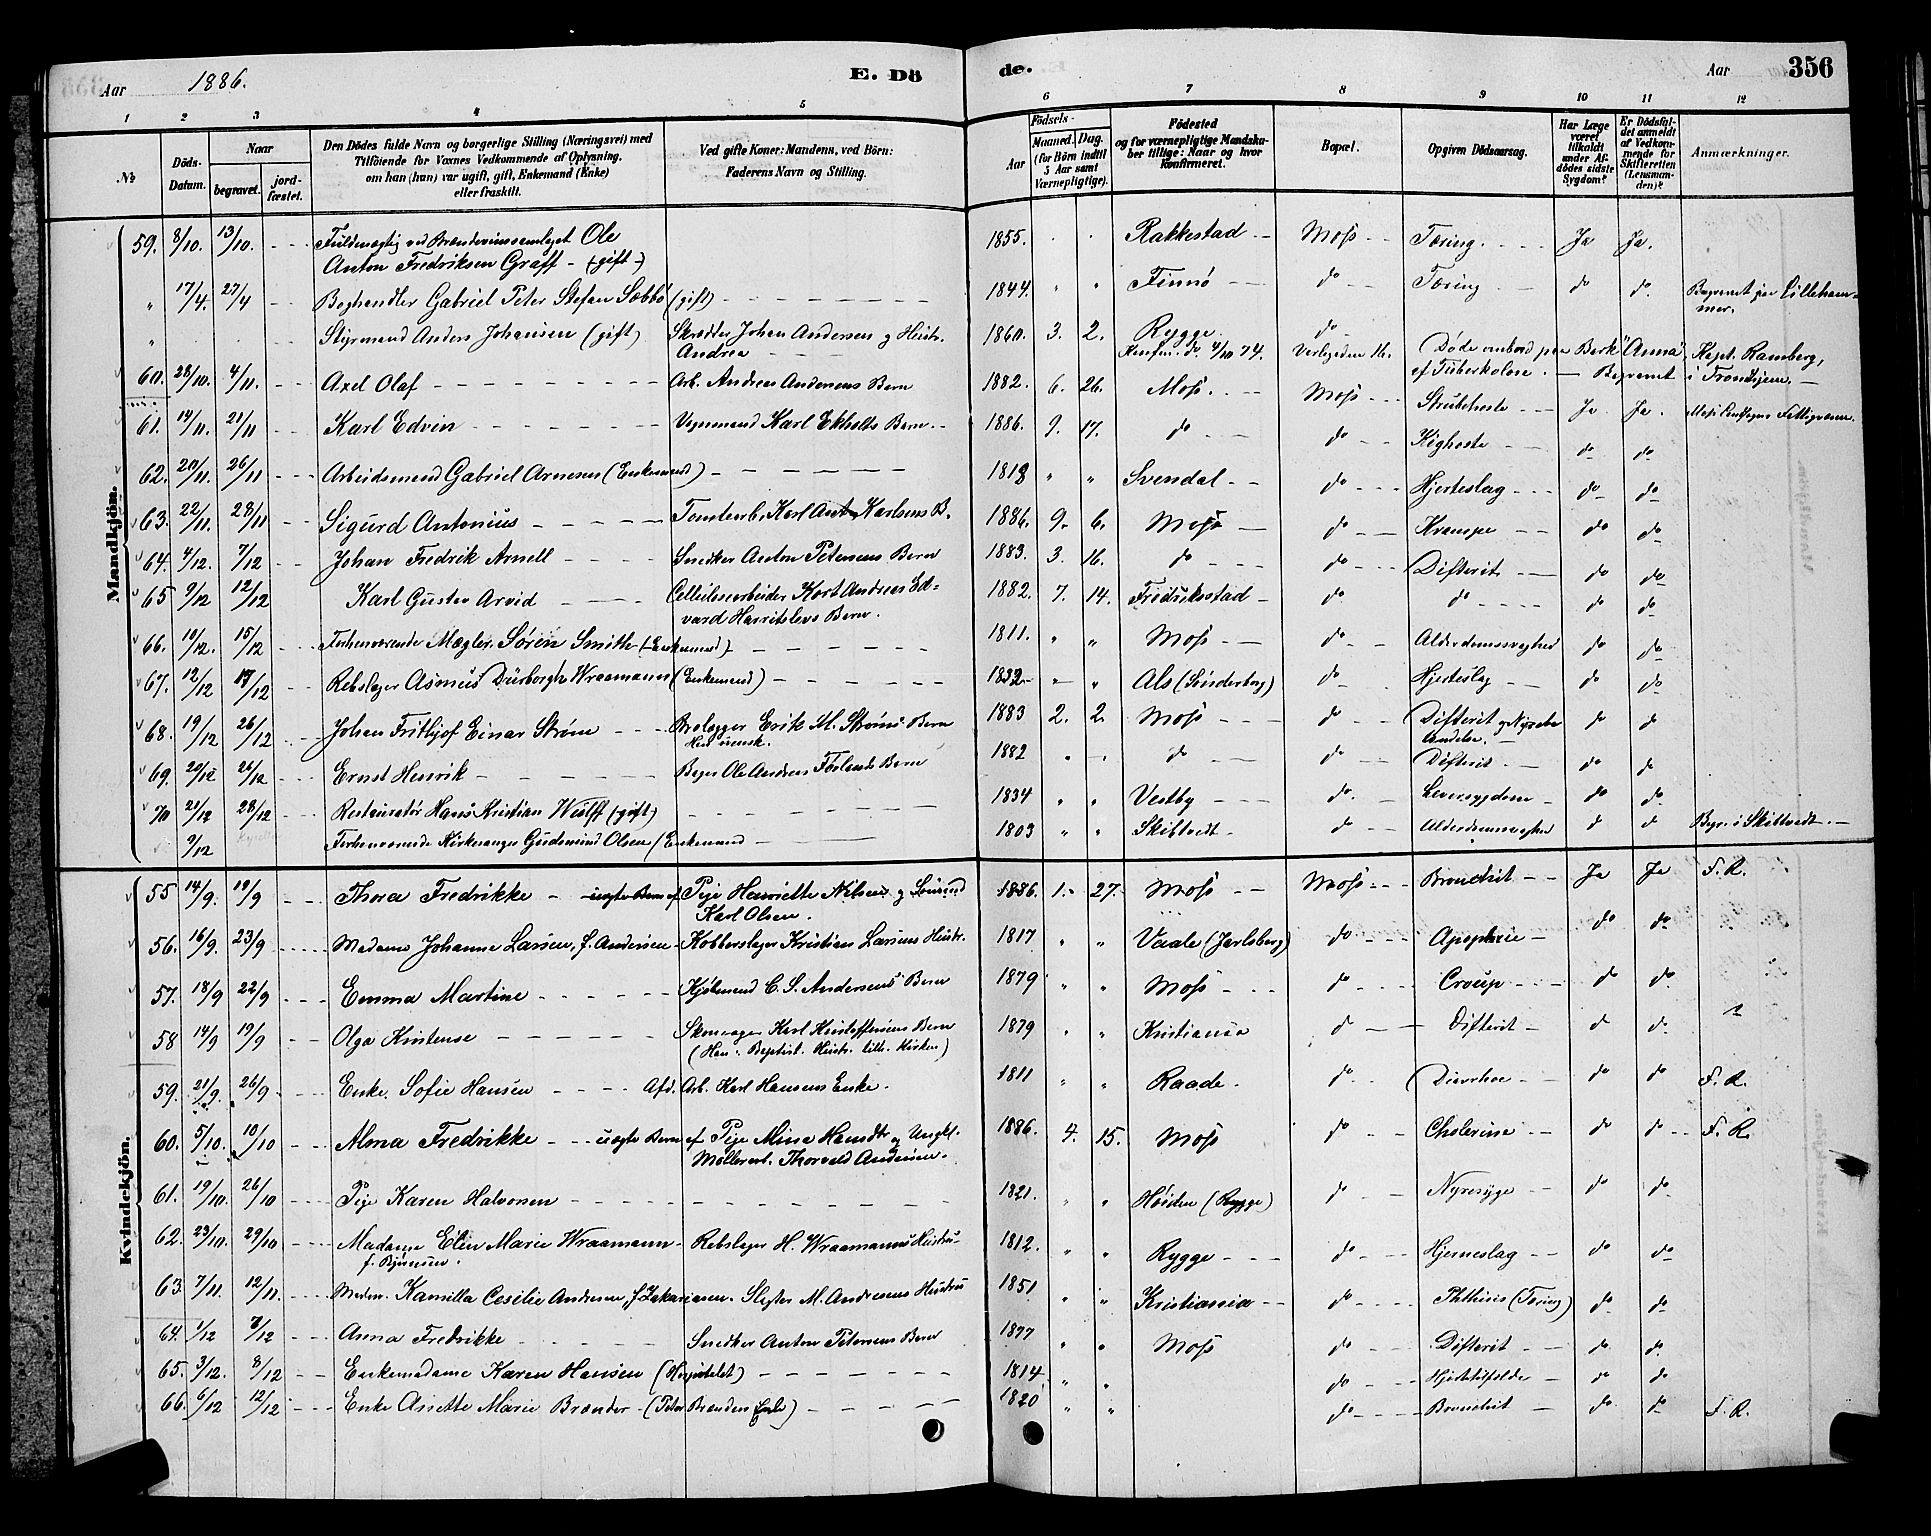 Aar 1886. E. Dö de. Aar 356
1 2 3 4 5 6 7 8 9 10 11 12
No
Döds-Datum.
Naar
begravet. jord-fæstet.
Den Dödes fulde Navn og borgerlige Stilling (Næringsvei) med
Tilföiende for Voxnes Vedkommende af Oplysning,
om han (hun) var ugift, gift, Enkemand (Enke)
eller fraskilt.
Ved gifte Koner: Mandens, ved Börn:
Faderens Navn og Stilling.
Födsels-
Aar Maaned. Dag.
(for Börn indtil
5 Aar samt
Værnepligtige).
Födested
og for værnepligtige Mandska-
ber tillige: Naar og hvor
Konfirmeret.
Bopæl.
Opgiven Dödsaarsag.
Har Læge
været
tilkaldt
under Af-
dödes sidste
Sygdom?
Er Dödsfal-
det anmeldt
af Vedkom-
mende for
Skifteretten
(Lensman-
den)?
Anmærkninger.
Mandkjön.
59. 8/10. 13/10. Fuldmægtig ved Brændevinssamlaget Ole 1855. Rakkestad Moss Tæring. Ja Ja.
Anton Fredriksen Graff - (gift)
" 17/4. 27/4 Boghandler Gabriel Peter Stefan Sæbbö (gift) 1844. " " Finnö do Tæring do do. Begravet paa Lilleham-
mer.
" Styrmand Anders Johansen (gift) Skrædder Johan Andersen og Hustr. 1860. 3. 2. Rygge do
Andrea Konfirm. do 4/10 74. Døde ombord paa Bark "Anna" Kapt. Ramberg,
af Tuberkolose. - Begravet i Trondhjem. -
60. 28/10. 4/11. Axel Olaf Arb. Andreas Andersens Barn 1882. 6. 26. Moss. Moss Strubehoste Ja Ja.
61. 14/11. 21/11 Karl Edvin Vognmand Karl Ekholts Barn. 1886. 9. 17. do do Kighoste do do
62. 20/11. 26/11 Arbeidsmand Gabriel Arnesen (Enkemand) 1818 " " Svendal do Hjerteslag do do
63. 22/11. 28/11 Sigurd Antonius Tomtearb. Karl Ant. Karlsens B. 1886. 9. 6. Moss do Krampe do do
64. 4/12. 7/12 Johan Fredrik Arnell Snedker Anton Petersens Barn 1883. 3. 16. do do Difterit do do
65 9/12 12/12 Karl Gustav Arvid Cellulosearbeider Karl Andreas Ed- 1882. 7. 14. Fredriksstad do do do do
vard Harritslevs Barn.
66. 10/12. 15/12 Forhenværende Mægler Sören Smith (Enkemand) 1811. " " Moss do Alderdomssvaghed do do
67. 12/12 17/12 Rebslager Asmus Dürborgh Wraamann (Enkemand) 1832 " " Als (Sönderborg) do Hjerteslag do do
68. 19/12 26/12 Johan Frithjof Einar Strøm Brolægger Erik M. Strøms Barn 1883 2. 2. Moss do Difterit og Nyrebe-
tændelse. do do
69. 20/12 26/12 Ernst Henrik Bager Ole Andreas Förlands Barn 1882 " do do Difterit do do
70 21/12 28/12 Restauratör Hans Kristian Wülff (gift) 1834 " " Vestby do. Leversygdom do do
9/12 Forhenværende Kirkesanger Gudmund Olsen (Enkemand 1803 " " Skibtvedt do Alderdomssvaghed do do Begr. i Skibtvedt.
Kvindekjön.
55 14/9. 19/9 Thora Fredrikke - uægte Barn af Pige Henriette Nilsen og 1886. 1. 27. Moss Moss Bronchit Ja Ja F. R.
Karl Olsen.
56. 16/9. 23/9 Madame Johanne Larsen, f. Andersen Kobberslager Kristian Larsens Hustr. 1817 " " Vaale (Jarlsberg) do Apoplexie do do
57. 18/9 22/9 Emma Martine Kjøbmand C. S. Andersens Barn 1879 " " Moss do Croup do do
58 14/9 19/9 Olga Kristense Skomager Karl Kristoffersens Barn 1879 " " Kristiania do Difterit do do
(Han: Baptist. Hustr. tilh. Kirken)
59. 21/9. 26/9 Enke Sofie Hansen Afd. Arb. Karl Hansens Enke. 1811 " " Raade. do Diarrhoe do do F. R.
60. 5/10. 10/10 Alma Fredrikke uægte Barn af Pige Mina Handt og Ungkl. 1886. 4. 15. Moss do Cholerine do do F. R.
Møllerarb. Thorvald Andersen.
61. 19/10. 26/10 Pige Karen Halvorsen 1821. " " Høiden (Rygge) do Nyresyge do do
62. 23/10. 29/10 Madame Elin Marie Wraamann Rebslager H. Wraamanns Hustru 1812. " " Rygge do Hjerneslag do do
63. 7/11. 12/11. Madm. Kamilla Cesilie Andresen, f. Zakariasen. Slagter M. Andresens Hustru 1851 " " Kristiania do Phthisis (Tæring) do do
64. 1/12 7/12 Anna Fredrikke Snedker Anton Petersens Barn 1877 " " Moss do Difterit do do
65. 3/12. 8/12 Enkemadame Karen Hansen (Hospitalet) 1814 " " do do do
66. 6/12 12/12 Enke Anette Marie Brænder (Peter Brænders Enke) 1820 " " do Bronchit do do F. R.